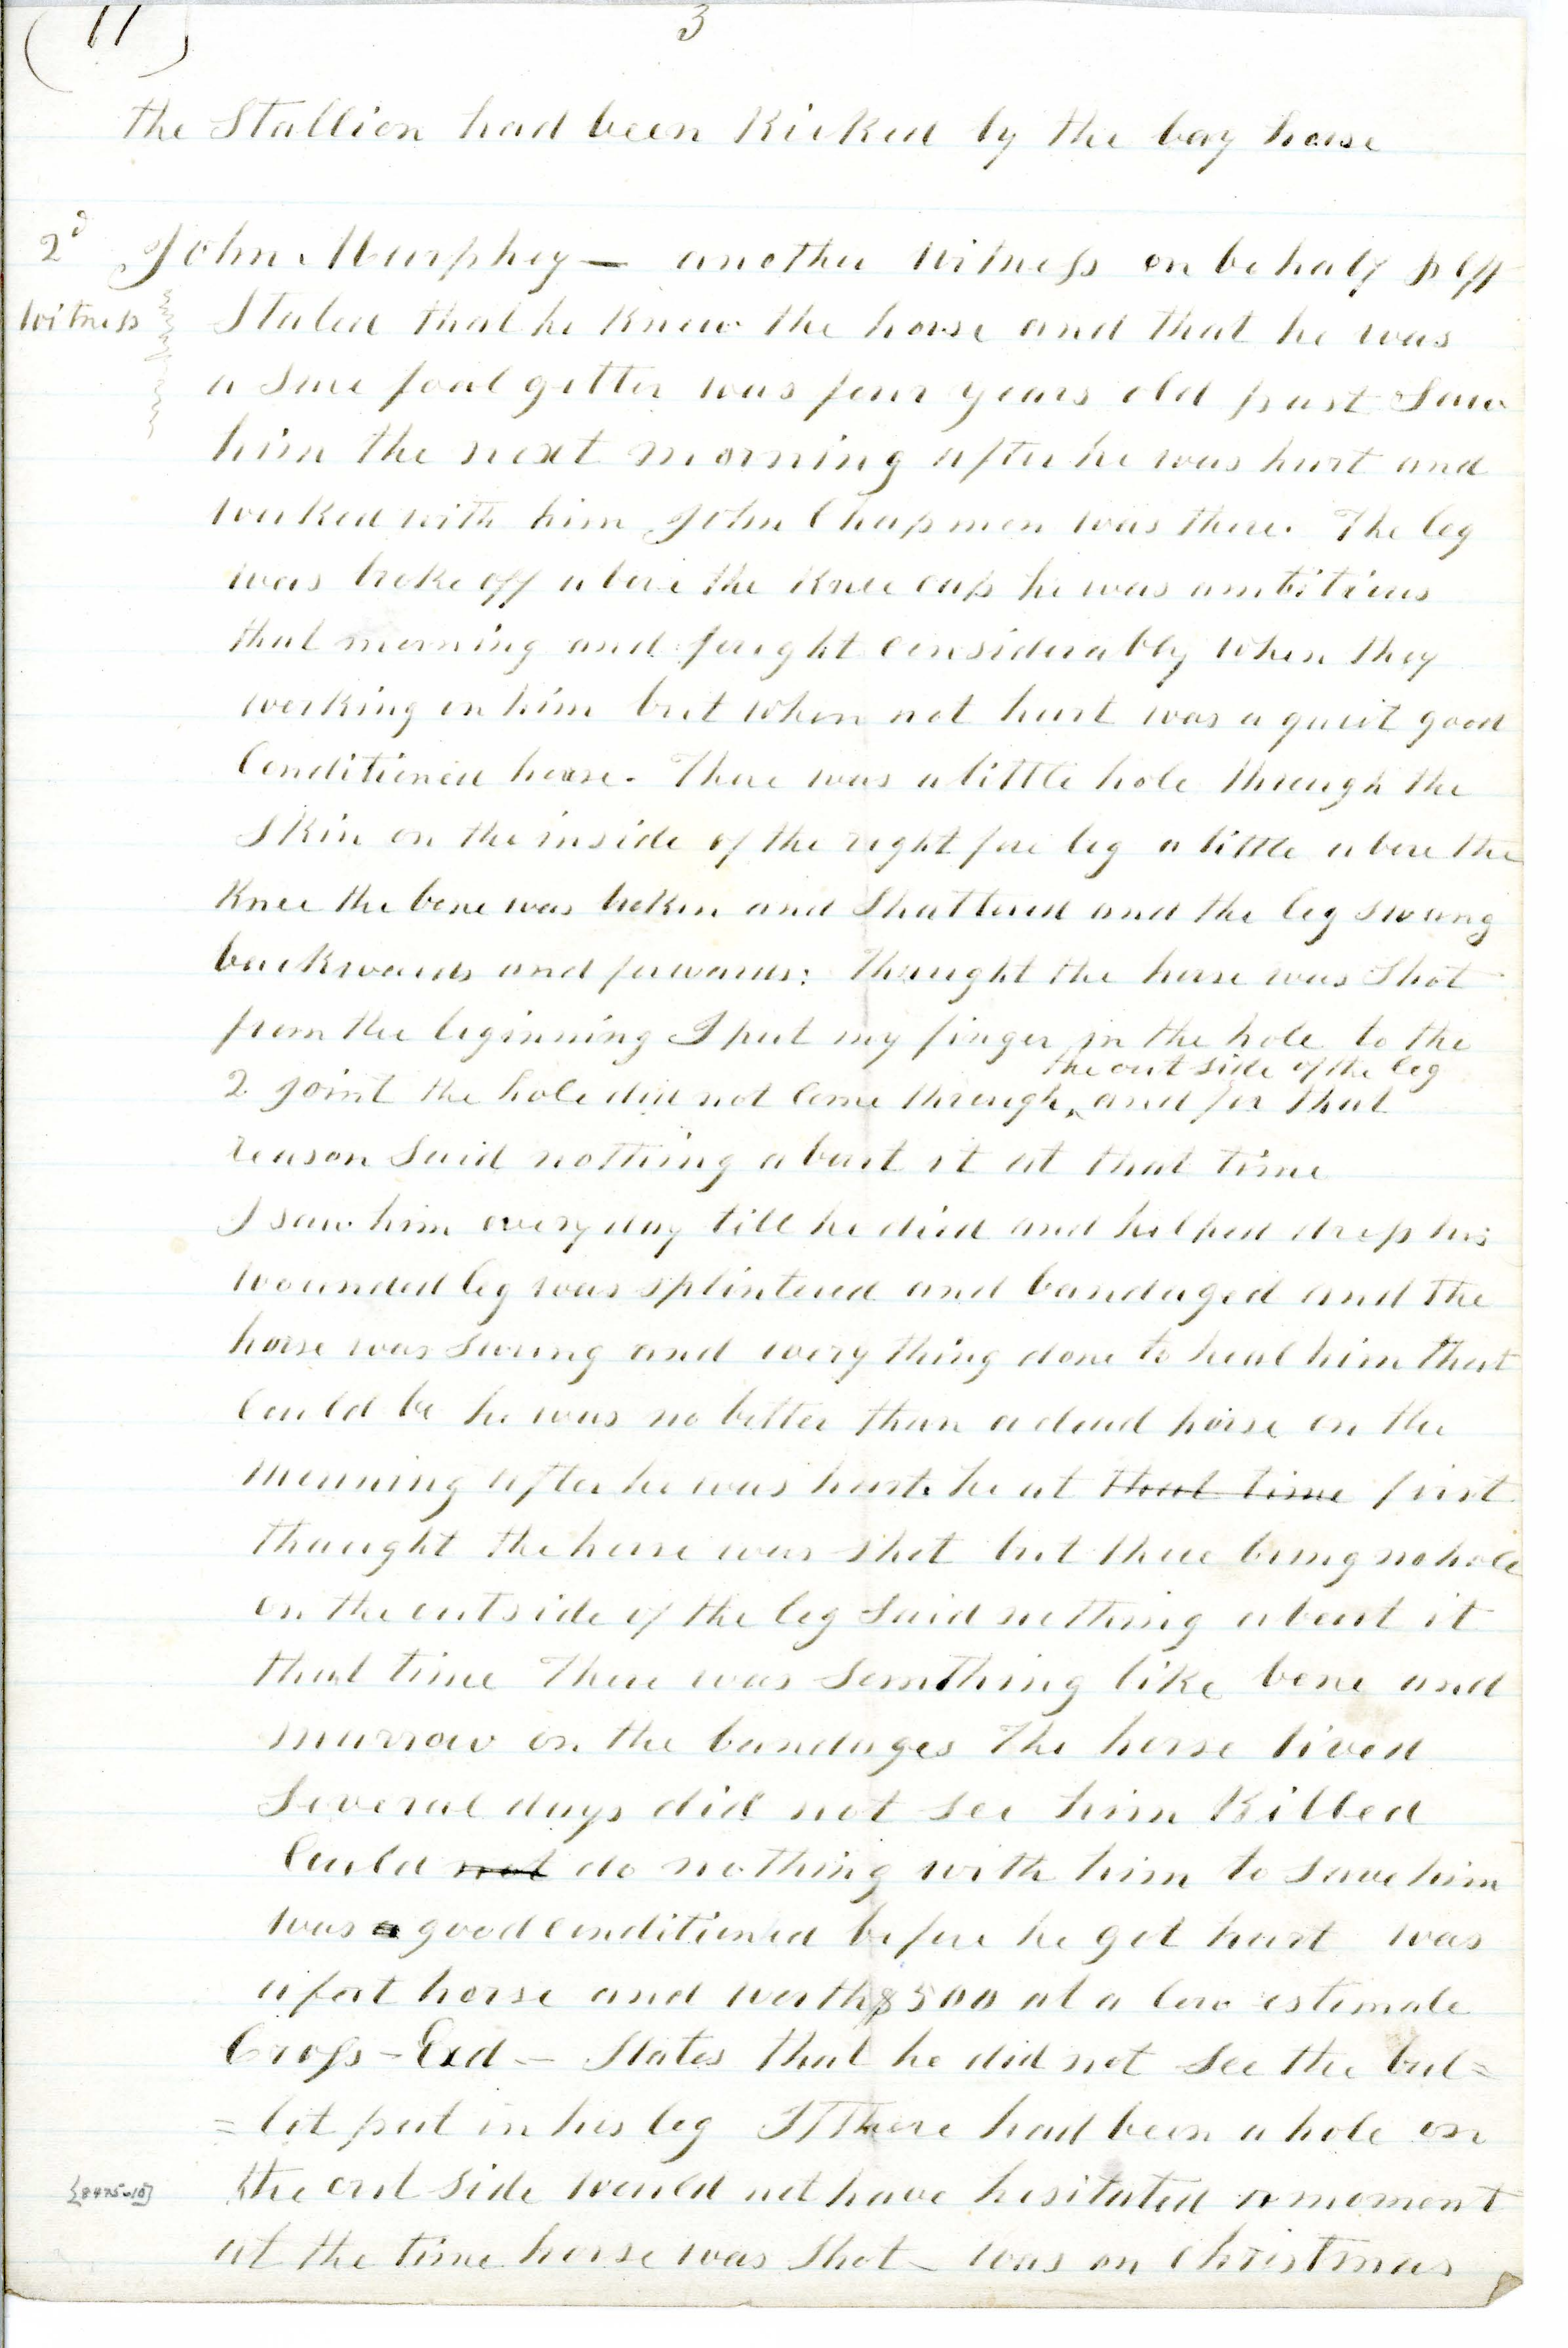 (11)
3
the Stallion had been Kicked by the bay horse
2d John Murphey — another witness on behalf plff
witness Stated that he knew the horse and that he was
a sure foal getter was four years old past Saw
him the next morning after he was hurt and
worked with him John Chapman was there. The leg
was broke off above the Knee cap he was ambitious
that morning and fought considerably when they
working on him but when not hurt was a quiet good
Conditioned horse. There was a little hole through the
Skin on the inside of the right fore leg a little above the
Knee the bone was broken and Shattered and the leg swung
backwards and forwards: thought the horse was Shot
from the beginning I put my finger in the hole to the
the out side of the leg
2 joint the hole did not come through ^ and for that
reason Said nothing about it at that time
I saw him every day till he died and helped dress his
wounded leg was splintered and bandaged and the
horse was swung and every thing done to heal him that
Could be he was no better than a dead horse on the
morning after he was hurt. he at that time first
thought the horse was shot but there being no hole
on the outside of the leg Said nothing about it
that time There was Somthing like bone and
marrow on the bandages The horse lived
Several days did not see him Killed
Could not do nothing with him to save him
was a good conditioned before he got hurt was
a fast horse and worth $500 at a low estimate
Cross-Exd — States that he did not see the bul=
=let put in his leg If there had been a hole on
the out side would not have hesitated a moment
at the time horse was Shot — was on Christmas
{8475-10}